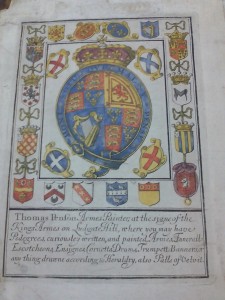 Thomas Hinton Armes Painter, at the signe of the
Kings Armes on Ludgate Hill, where you may have
Pedegrees, curiouslie written, and painted, Armes, Funerall
Escotcheons, Ensignes, Cornetts, Drums, Trumpett Banners, or
any thing drawne according to Heraldry, also Palls of Velvit.